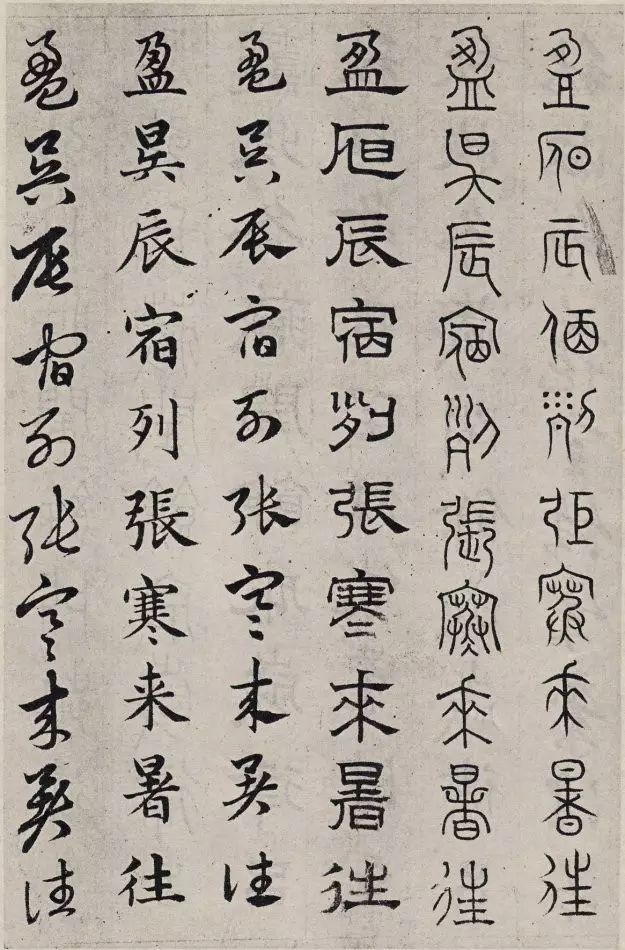 盈昃辰宿列張寒来暑往
盈昃辰宿列張寒来暑往
盈昃辰宿列張寒来暑往
盈昃辰宿列張寒来暑往
盈昃辰宿列張寒来暑往
盈昃辰宿列張寒来暑往